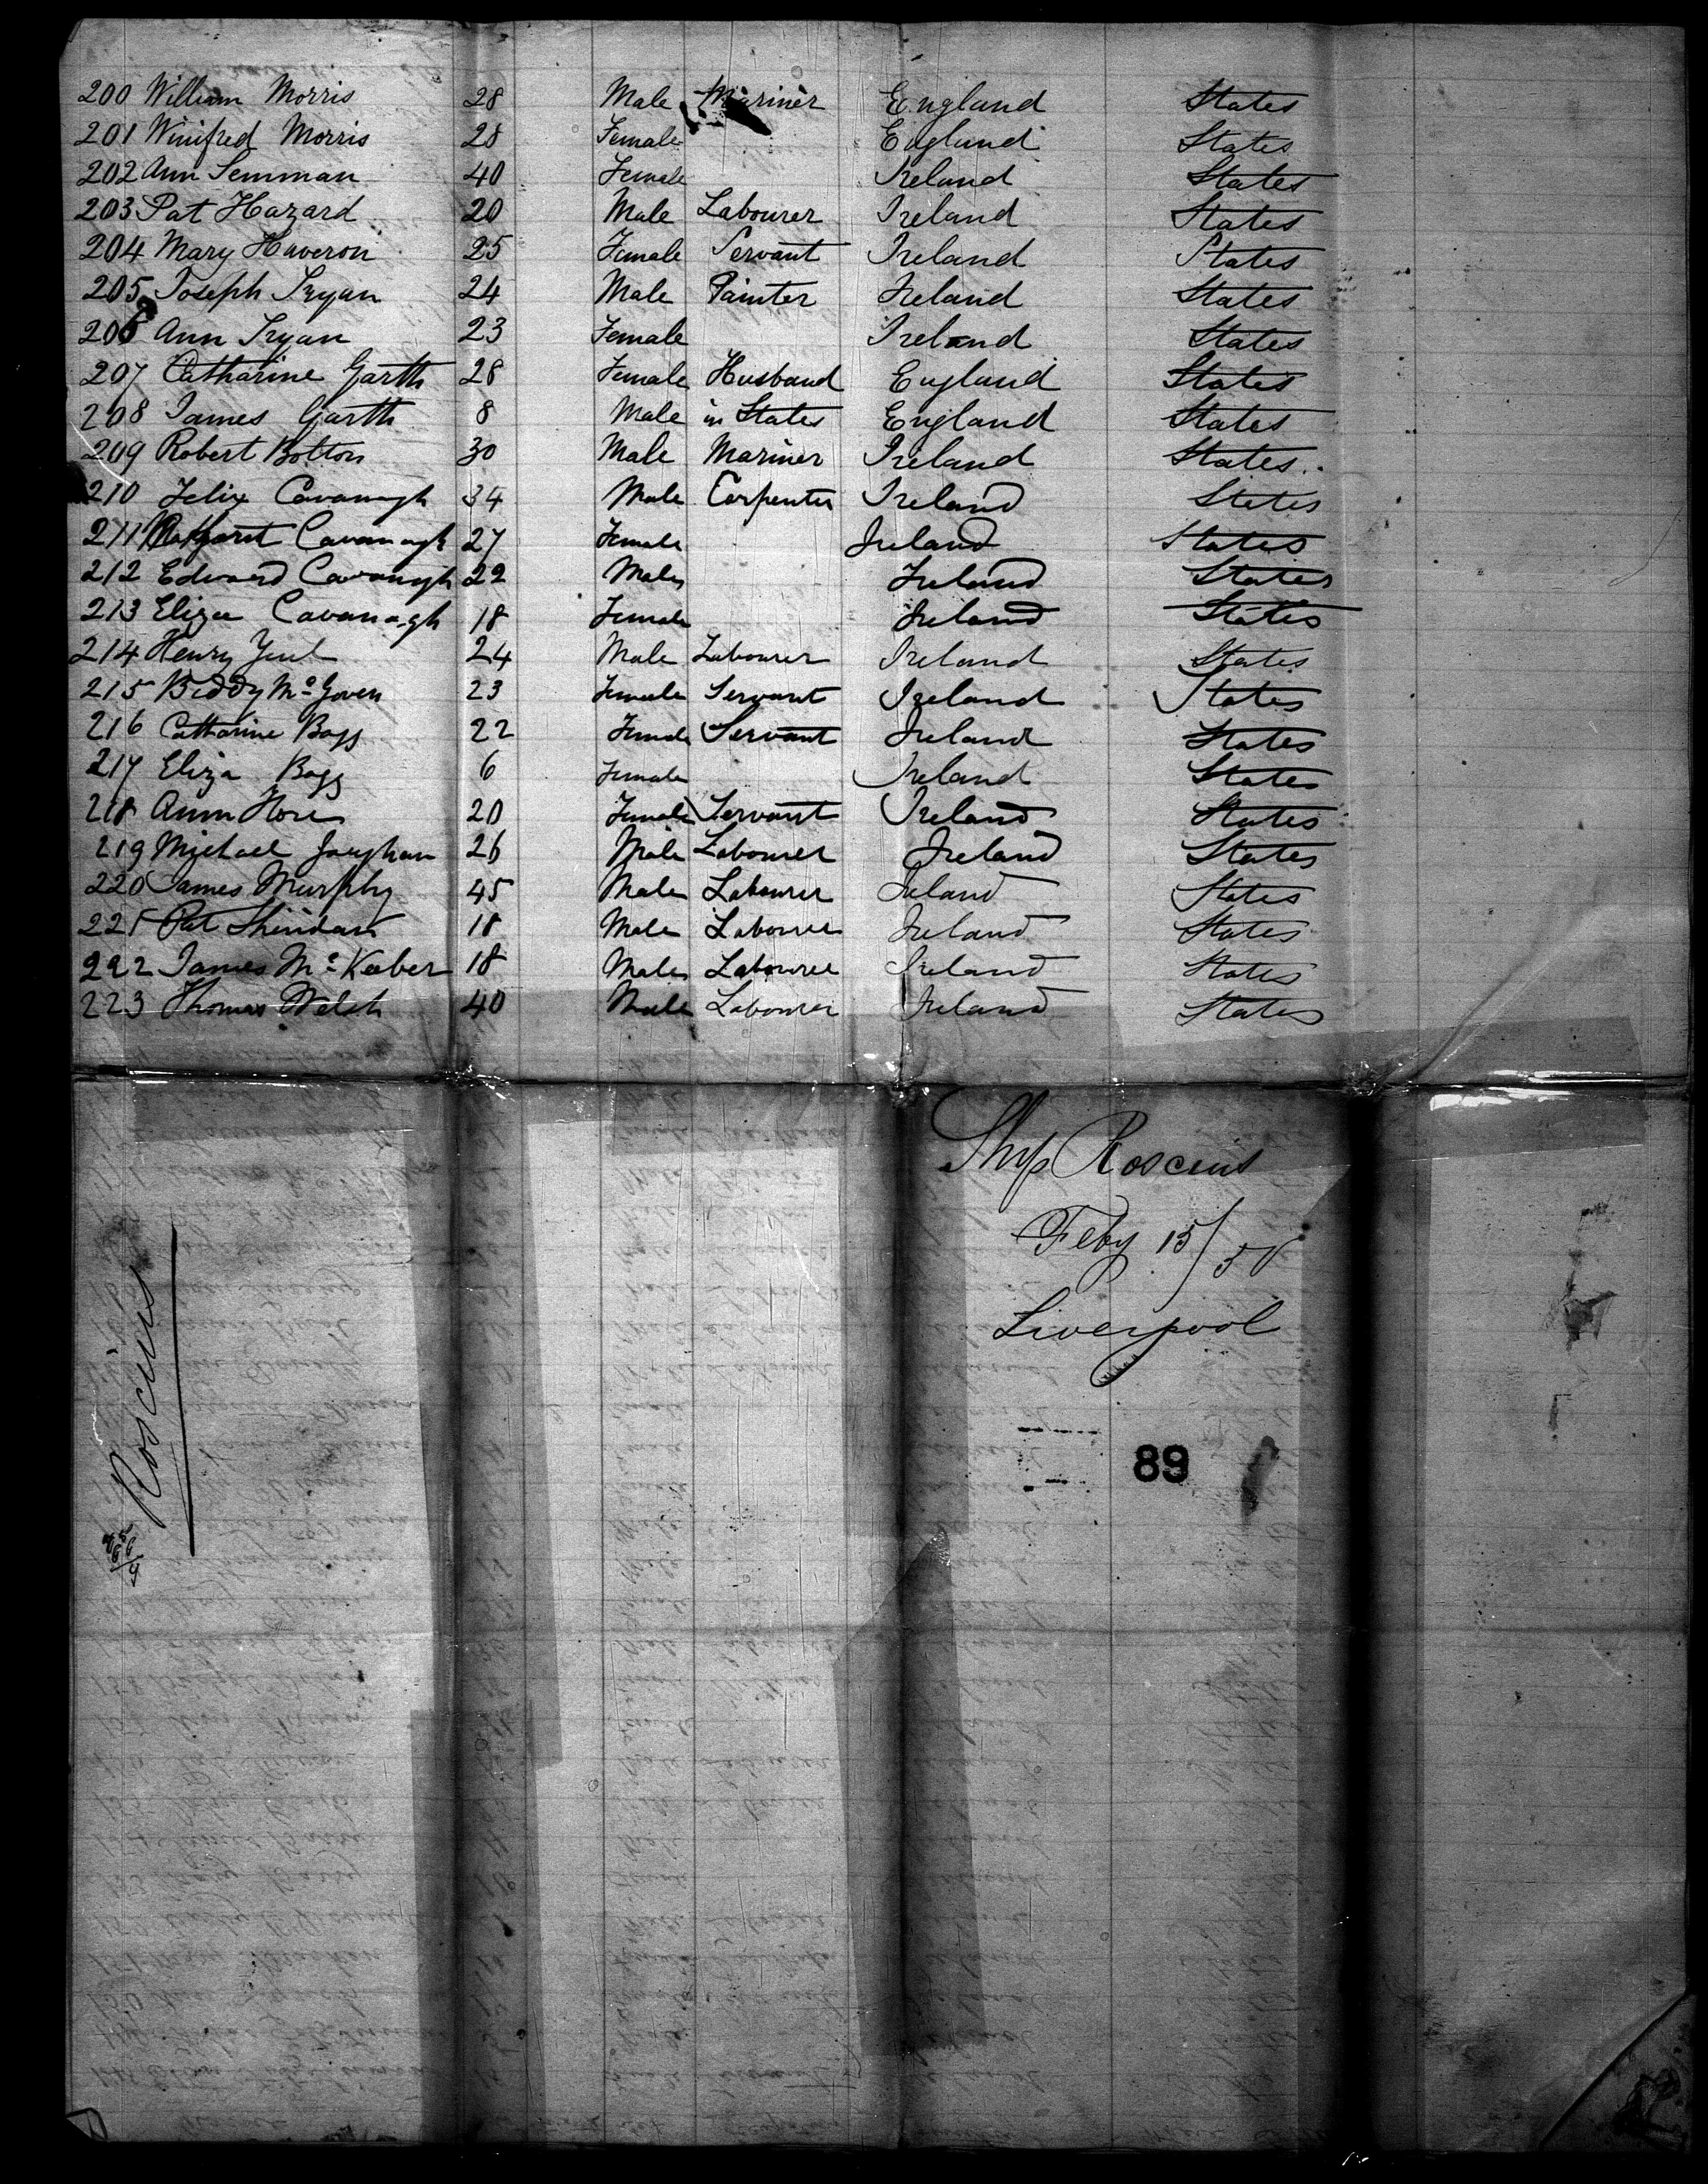 200 William Morris 28 Male Mariner England States
201 Winifred Morris 28 Female England States
202 Ann Semman 40 Female Ireland States
203 Pat Hazard 20 Male Labourer Ireland States
204 Mary Haveron 25 Female Servant Ireland States
205 Joseph Tryan 24 Male Painter Ireland States
206 Ann Tryan 23 Female Ireland States
207 Catharine Garth 28 Female Husband England States
208 James Garth 8 Male in States England States
209 Robert Bolton 30 Male Mariner Ireland States
210 Felix Cavanagh 34 Male Carpenter Ireland States
211 Margaret Cavanagh 27 Female Ireland States
212 Edward Cavanagh 22 Male Ireland States
213 Eliza Cavanagh 18 Female Ireland States
214 Henry 24 Male Labourer Ireland States
215 Biddy McGoven 23 Female Servant Ireland States
216 Catharine Bogg 22 Female Servant Ireland States
217 Eliza Bogg 6 Female Ireland States
218 Ann Hore 20 Female Servant Ireland States
219 Michael Gaughan 26 Male Labourer Ireland States
220 James Murphy 45 Male Labourer Ireland States
221 Pat Sheridan 18 Male Labourer Ireland States
222 James McKeeber 18 Male Labourer Ireland States
223 Thomas Welsh 40 Male Labourer Ireland States
Ship Roscius
Feby 15/50
Liverpool
89
Roscius